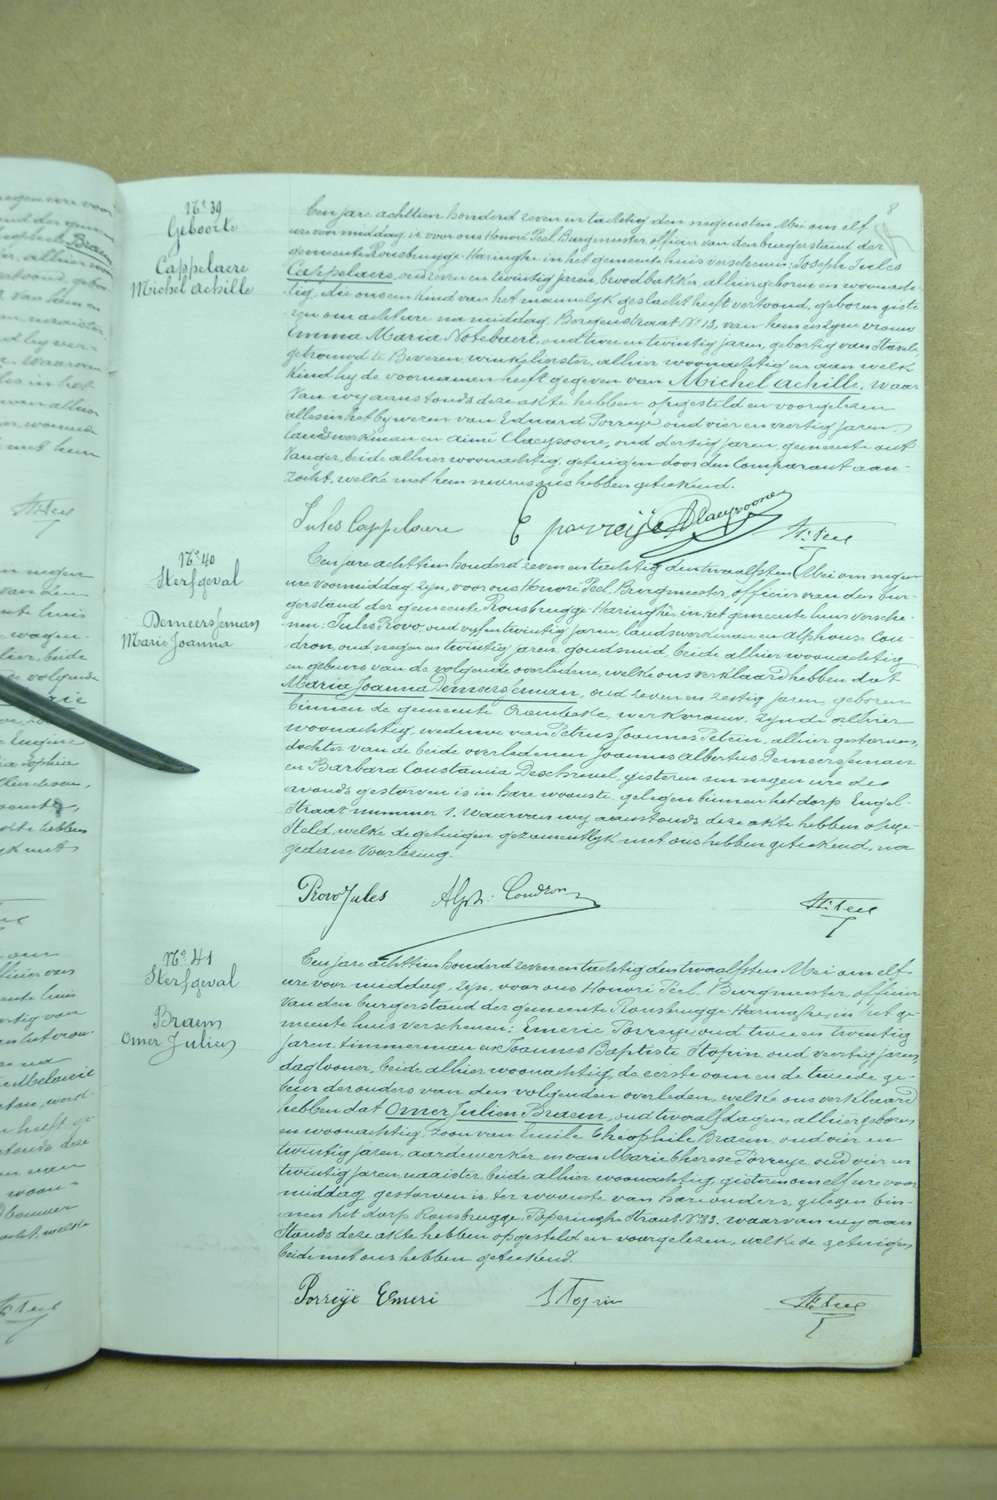 8
N.º 39
Geboorte
Cappelaere
Michel Achille
Een jare achttien honderd zeven en tachtig den negensten Mei om elf
ure voormiddag is voor ons Honoré Peel, Burgmeester, officier van den burgerstand der
gemeente Rousbrugge Haringhe in het gemeente huis verschenen: Joseph Jules
Cappelaere, oud zeven en twintig jaren, broodbakker, alhier geboren en woonach-
tig, die ons een kind van het mannelyk geslacht heeft vertoond, geboren giste-
ren om acht ure na middag, Bergenstraat Nº 13, van hem en zyne vrouw
Emma Maria Notebaert, oud twee en twintig jaren, geboortig van Stavele,
getrouwd te Beveren, winkelierster, alhier woonachtig en aan welk
kind hy de voornamen heeft gegeven van Michel Achille. Waar
van wy aanstonds deze akte hebben opgesteld en voorgelezen
alles in het bywezen van Eduard Porreye oud vier en veertig jaren,
landswerkman en Aimé Claeysoone, oud dertig jaren, gemeente ont
vanger, beide alhier woonachtig, getuigen door den Comparant aan-
zocht, welke met hem nevens ons hebben geteekend.
Jules Cappelaere
E porreije
A Claeysoone
H. Peel
N.º 40
Sterfgeval
Demeersseman
Marie Joanna
Een jare achttien honderd zeven en tachtig den twaalfsten Mei om negen
ure voormiddag zyn, voor ons Honoré Peel, Burgmeester, officier van den bur-
gerstand der gemeente Rousbrugge Haringhe, in het gemeente huis versche-
nen: Jules Provo, oud vyf en twintig jaren, landswerkman en Alphons Cou-
dron, oud negen en twintig jaren, goudsmid beide alhier woonachtig
en gebeurs van de volgende overledene, welke ons verklaard hebben dat
Maria Joanna Demeersseman, oud zeven en zestig jaren, geboren
binnen de gemeente Crombeke, werkvrouw, zynde alhier
woonachtig, weduwe van Petrus Joannes Petrin, alhier gestorven,
dochter van de beide overledenen Joannes Albertus Demeersseman
en Barbara Constancia Deschreel, gisteren om negen ure des
avonds gestorven is in hare woonste, gelegen binnen het dorp Engel-
straat nummer 1. Waarvan wy aanstonds deze akte hebben opge-
steld, welke de getuigen gezamentlyk met ons hebben geteekend, na
gedane voorlezing.
Provo Jules
Alph. Coudron
H. Peel
N.º 41
Sterfgeval
Braem
Omer Julien
Een jare achttien honderd zeven en tachtig den twaalfsten Mei om elf
ure voor middag, zyn, voor ons Honoré Peel, Burgmeester, officier
van den burgerstand der gemeente Rousbrugge Haringhe, in het ge-
meente huis verschenen: Emeric Porreye oud twee en twintig
jaren timmerman en Joannes Baptiste Stopin oud veertig jaren,
daglooner, beide alhier woonachtig, de eerste oom en de tweede ge-
buur der ouders van den volgenden overleden, welke ons verklaard
hebben dat Omer Julien Braem, oud twaalf dagen, alhier geboren
en woonachtig, zoon van Emile Théophile Braem, oud vier en
twintig jaren, aardewerker en van Marie Therese Porreye oud vier en
twintig jaren, naaister, beide alhier woonachtig, gisteren om elf ure voor
middag gestorven is ter woonste van hare ouders, gelegen bin-
nen het dorp Rousbrugge, Poperinghe Straat Nº 33. waarvan wy aan
stonds deze akte hebben opgesteld en voorgelezen, welke de getuigen
beide met ons hebben geteekend.
Porreije Emeri
S Topin
H. Peel